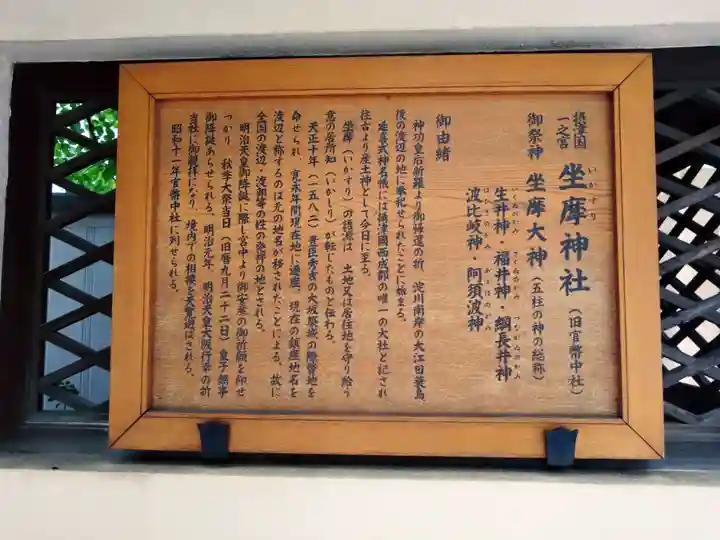 摂津国
一之宮
いかすり
坐摩神社（旧官幣中社）
御祭神 坐摩大神（五柱の神の総称）
いくゐのかみ さくゐのかみ つながゐのかみ
生井神・福井神・綱長井神
はひきのかみ あすはのかみ
波比岐神・阿須波神
御由緒
神功皇后新羅より御帰還の折、淀川南岸の大江田蓑島、
後の渡辺の地に奉祀せられたことに始まる。
延喜式神名帳には摂津國西成郡の唯一の大社と記され
往古より産土神として今日に至る。
坐摩（いかすり）の語源は、土地又は居住地を守り給う
意の居所知（いかしり）が転じたものと伝わる。
天正十年（一五八二）豊臣秀吉の大坂築城の際替地を
命ぜられ、寛永年間現在地に遷座。現在の鎮座地名を
渡辺と称するのは元の地名が移されたことによる。故に
全国の渡辺・渡部等の姓の発祥の地とされる。
明治天皇御降誕に際し宮中より御安産の御祈願を仰せ
つかり、秋季大祭当日（旧暦九月二十二日）皇子
御降誕あらせられる。明治元年、明治天皇大阪行幸の折
当社に御親拝になり、境内での相撲を天覧遊ばされる。
昭和十一年官幣中社に列せられる。